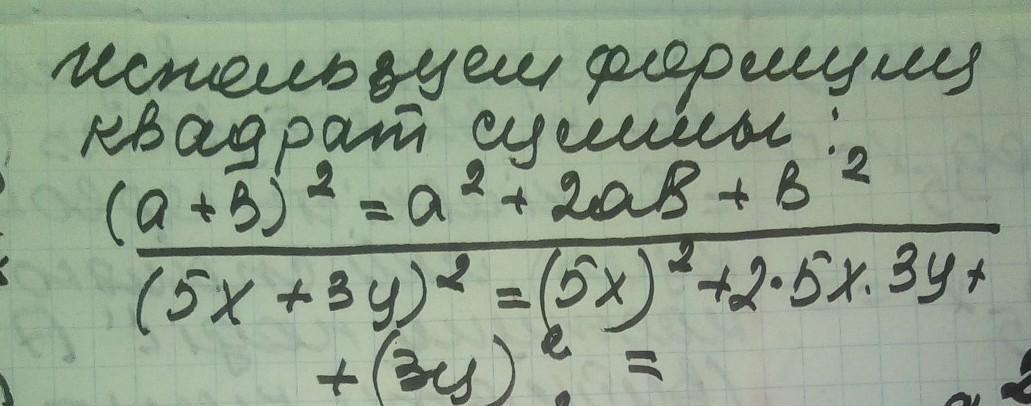 используем формулу
квадрат суммы:
(a+b)² = a² + 2ab + b²
(5x + 3y)² = (5x)² + 2·5x·3y +
+ (3y)² =